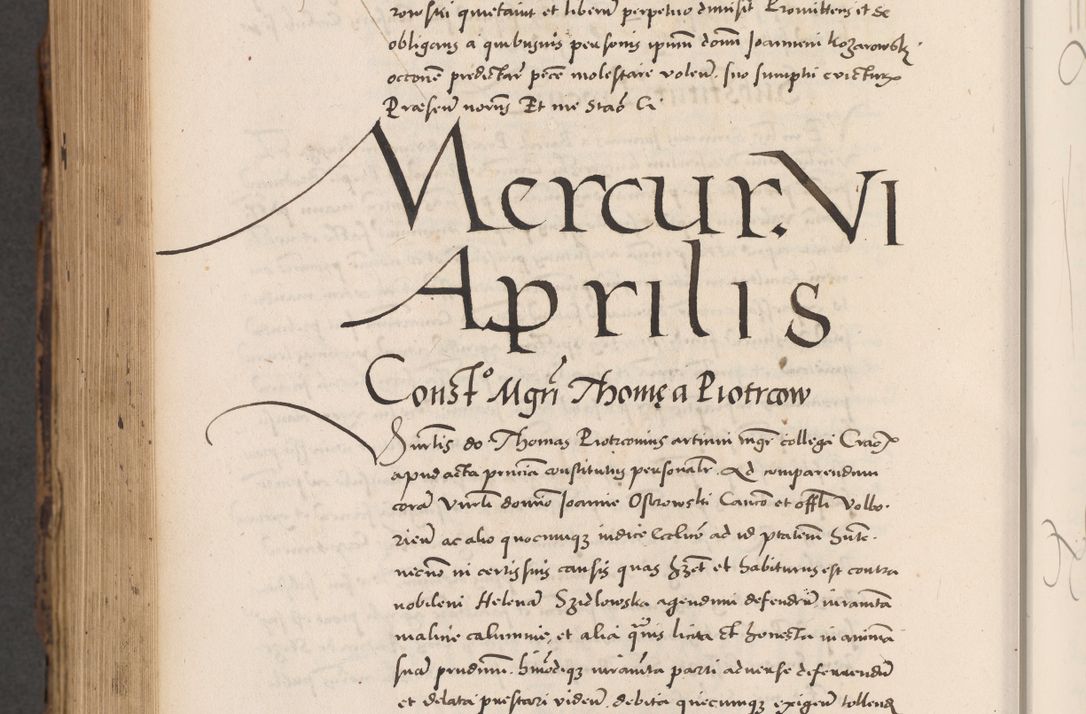 rowski quietavit et liberum perpetuo dimisit Promittens et se
obligans a quibusvis personis ipsum domi Joannem Kozarowski
occone predictar pecc molestare volen suo sumptu evictur
Præsen norius Et me Stão Ci
Mercur. VI
Aprilis
Const.o Mgri Thomę a Piotrcow
Venlis do. Thomas Piotrcovius artium mgr collega Crac
apud acta prncia constitutus personalr. Ad comparendum
corã Venli domino Joanne Ostrowski Canco et offli Volbo.
rien ac alio quocunqz iudice ad id ptatem hnte.
necno in certis suis causis quas hzet et habiturus est contra
nobilem Helenã Szidlowska agendum defendenm iuramta
malicie calumnie, et alia quevis licita et honesta in animã
suã prudnum. hmodiqz iuramta parti adverse deferendum
et delata prestari viden. debita quecunqz exigen tollend